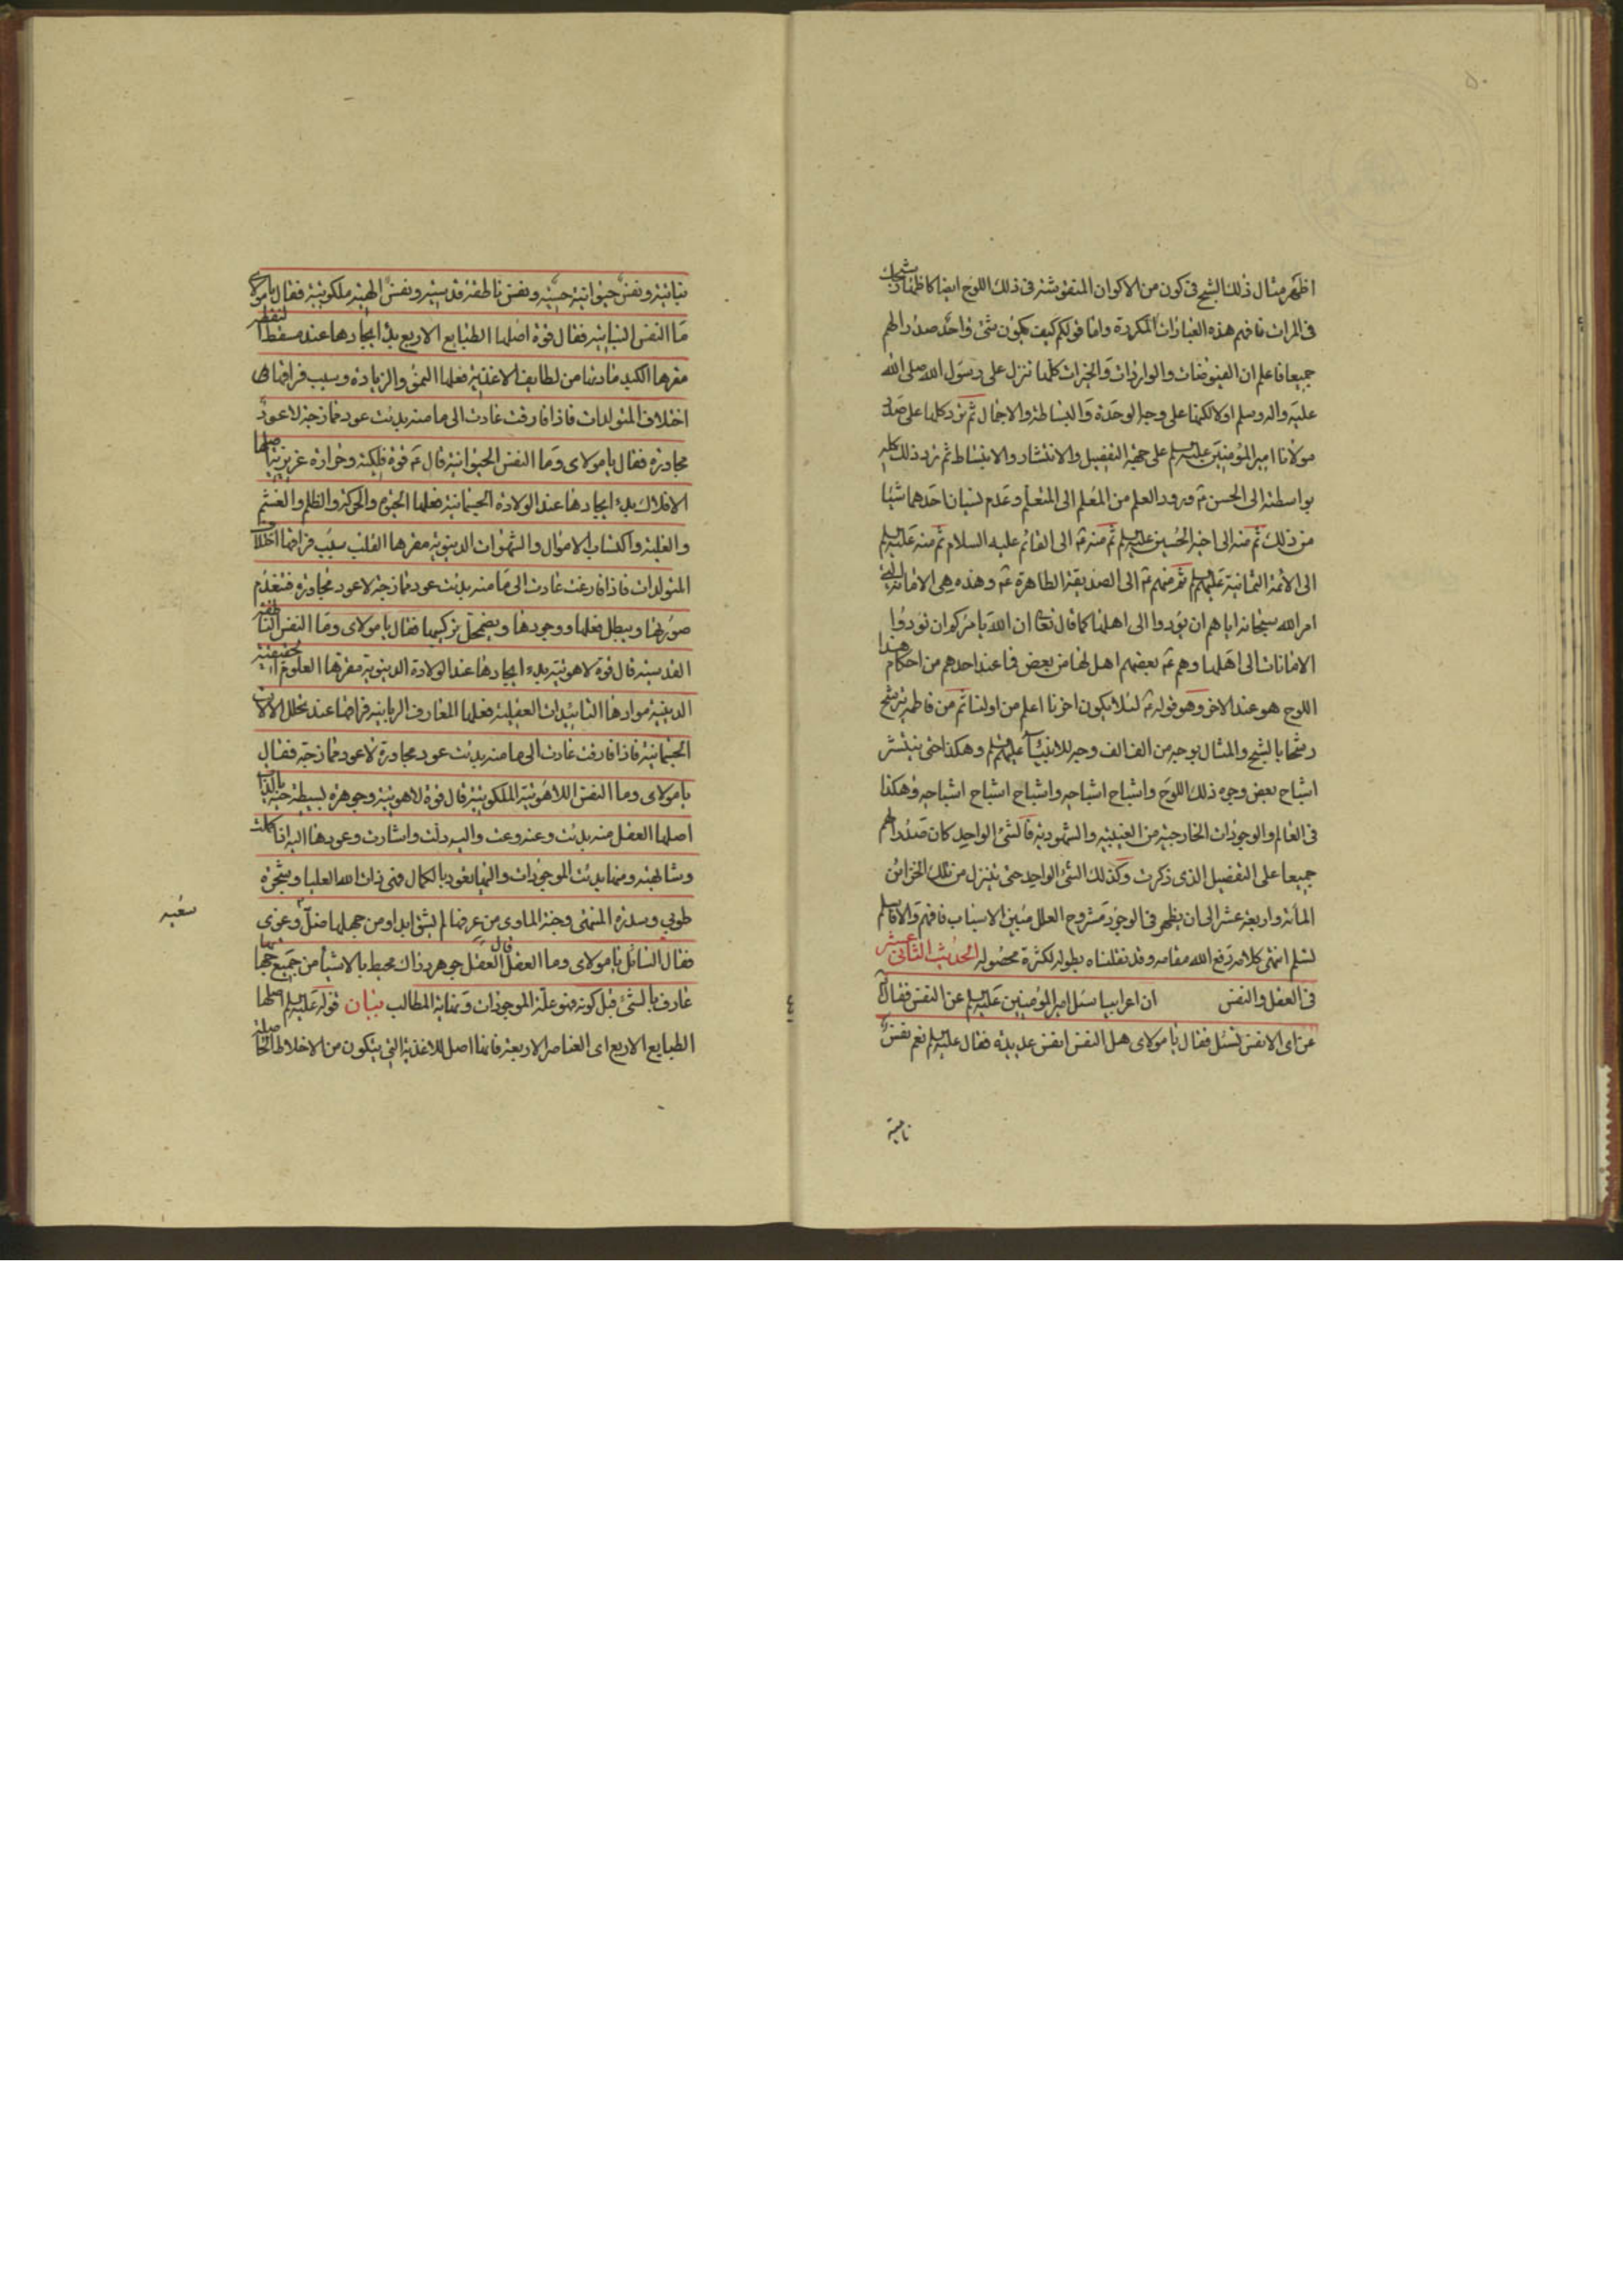 ۵۰
اظهر مثال ذلك الشبح فى كون من الاكوان المنقوشة فى ذلك اللوح ايضا كاظهار شبحك
فى المرات فافهم هذه العبارات المكررة واما قولكم كيف يكون شئ واحد صدرا لهم
جميعا فاعلم ان الفيوضات والواردات والخيرات كلها تنزل على رسول الله صلى الله
عليه واله وسلم اولا لكنها على وجه الوحدة والبساطة والاجمال ثم ترد كلها على صدر
مولانا امير المؤمنين عليه السلام على جهة التفصيل والانتشار والانبساط ثم ترد ذلك كله
بواسطته الى الحسن ع ورود العلم من المعلم الى المتعلم وعدم نسيان احدهما شيئا
من ذلك ثم منه الى اخيه الحسين عليه السلم ثم منه ع الى القائم عليه السلام ثم منه عليه السلم
الى الائمة الثمانية عليهم السلم ثم منهم ع الى الصديقة الطاهرة ع وهذه هى الامانة التى
امر الله سبحانه اياهم ان يؤدوا الى اهلها كما قال تعالى ان الله يامركم ان تودوا
الامانات الى اهلها وهم ع بعضهم اهل لها من بعض فما عند احدهم من احكام هذا
اللوح هو عند الاخر وهو قوله ع لئلا يكون اخرنا اعلم من اولنا ثم من فاطمة يترشح
رشحا بالشبح والمثال بوجه من الف الف وجه للانبياء عليهم السلم وهكذا حتى ينتشر
اشباح بعض وجوه ذلك اللوح واشباح اشباحه واشباح اشباح اشباحه وهكذا
فى العالم والوجودات الخارجية من الغيبية والشهودية فالشئ الواحد كان صدرا لهم
جميعا على التفصيل الذى ذكرت وكذلك الشئ الواحد حتى يتنزل من تلك الخزائن
المأئة واربعة عشر الى ان يظهر فى الوجود مشروح العلل مبين الاسباب فافهم والا فاسلم
تسلم انتهى كلامه رفع الله مقامه وقد نقلناه بطوله لكثرة محصوله الحديث الثانى عشر
فى العقل والنفس ان اعرابيا سئل امير المؤمنين عليه السلم عن النفس فقال له
عن اى الانفس تسئل فقال يا مولاى هل النفس انفس عديدة فقال عليه السلم نعم نفس
نامية
نباتية ونفس حيوانية حسية ونفس ناطقة قدسية ونفس الهية ملكوتية فقال يا مولاى
ما النفس النباتية فقال قوة اصلها الطبايع الاربع بدؤ ايجادها عند مسقط النطفة
مقرها الكبد مادتها من لطايف الاغذية فعلها النمو والزيادة وسبب فراقها
اختلاف المتولدات فاذا فارقت عادت الى ما منه بدئت عود ممازجة لا عود
مجاورة فقال يا مولاى وما النفس الحيوانية قال ع قوة فلكية وحرارة غريزية اصلها
الافلاك بدء ايجادها عند الولادة الجسمانية فعلها الحيوة والحركة والظلم والغشم
والغلبة واكتساب الاموال والشهوات الدنيوية مقرها القلب سبب فراقها اختلاف
المتولدات فاذا فارقت عادت الى ما منه بدئت عود ممازجة لا عود مجاورة فتعدم
صورتها ويبطل فعلها ووجودها ويضمحل تركيبها فقال يا مولاى وما النفس الناطقة
القدسية قال قوة لاهوتية بدء ايجادها عند الولادة الدنيوية مقرها العلوم الحقيقية
الدينية موادها التاييدات العقلية فعلها المعارف الربانية فراقها عند تحلل الالات
الجسمانية فاذا فارقت عادت الى ما منه بدئت عود مجاورة لا عود ممازجة فقال
يا مولاى وما النفس اللاهوتية الملكوتية قال قوة لاهوتية وجوهرة بسيطة حية بالذات
اصلها العقل منه بدئت وعنه وعت واليه دلت واشارت وعودها اليه اذا كملت
وشابهته ومنها بدئت الموجودات واليها تعود بالكمال فهى ذات الله العليا وشجرة
طوبى وسدرة المنتهى وجنة الماوى من عرفها لم يشق ابدا ومن جهلها ضل وغوى
سعيه
فقال السائل يا مولاى وما العقل قال العقل جوهر دراك محيط بالاشياء من جميع جهاتها
عارف بالشئ قبل كونه فهو علة الموجودات ونهاية المطالب بيان قوله عليه السلم اصلها
الطبايع الاربع اى العناصر الاربعة فانها اصل للاغذية التى يتكون من الاخلاط